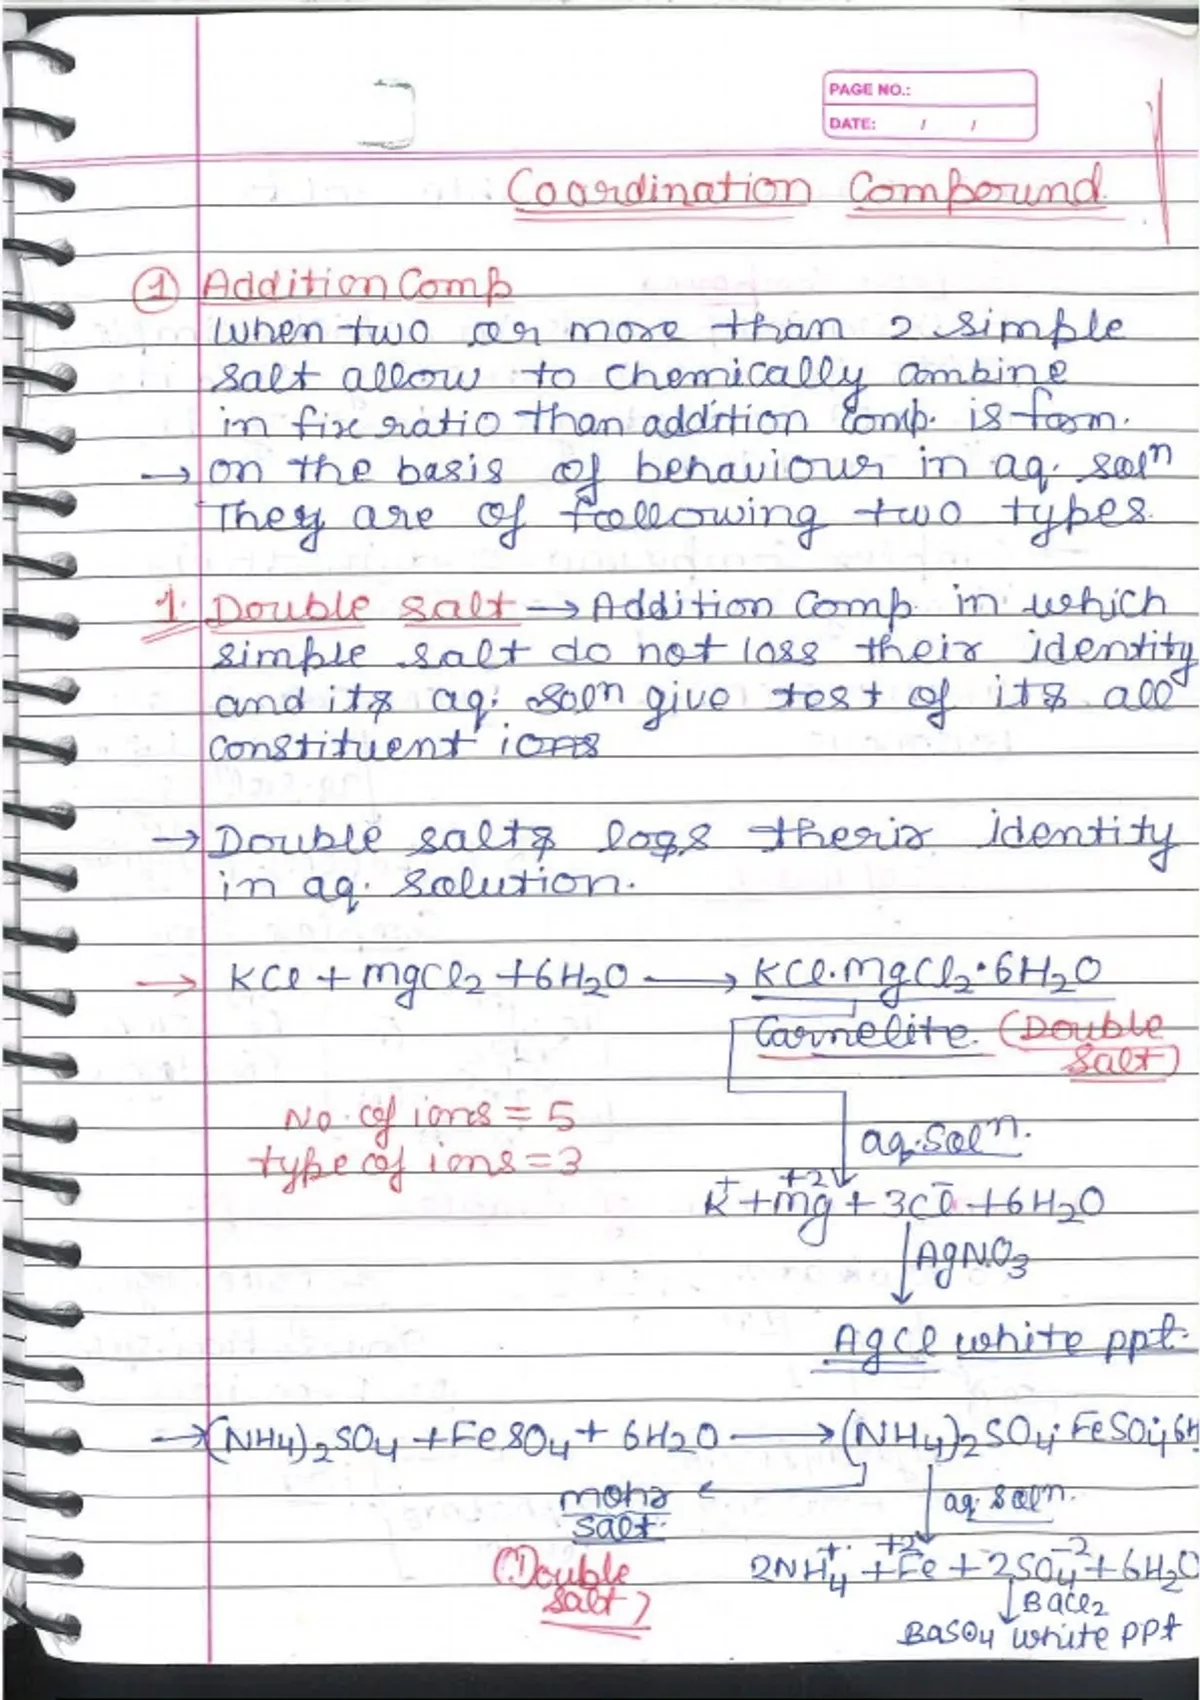 PAGE NO.:
DATE: / /
Coordination Compound.
① Addition Comp
When two or more than 2 simple
salt allow to chemically combine
in fix ratio than addition Comp. is form.
→ on the basis of behaviour in aq. solⁿ
They are of following two types.
1. Double salt → Addition Comp. in which
simple salt do not loss their identity
and its aq. solⁿ give test of its all
constituent ions
→ Double salts loss their identity
in aq. solution.
→ KCl + MgCl₂ + 6H₂O ⟶ KCl·MgCl₂·6H₂O
Carnelite. (Double
Salt)
No. of ions = 5
type of ions = 3
aq. Solⁿ.
K⁺ + Mg⁺² + 3Cl⁻ + 6H₂O
↓ AgNO₃
AgCl white ppt.
→ (NH₄)₂SO₄ + FeSO₄ + 6H₂O ⟶ (NH₄)₂SO₄·FeSO₄·6H
mohr ← ↓ aq. solⁿ.
salt.
(Double
salt)
2NH₄⁺ + Fe⁺² + 2SO₄⁻² + 6H₂O
↓ BaCl₂
BaSO₄ white ppt